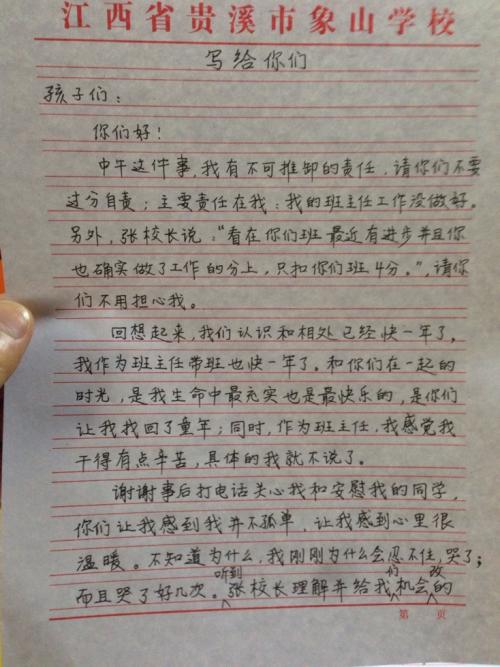 江西省贵溪市象山学校
写给你们
孩子们：
你们好！
中午这件事，我有不可推卸的责任，请你们不要
过分自责；主要责任在我：我的班主任工作没做好。
另外，张校长说：“看在你们班最近有进步并且你
也确实做了工作的分上，只扣你们班4分。”，请你
们不用担心我。
回想起来，我们认识和相处已经快一年了，
我作为班主任带班也快一年了。和你们在一起的
时光，是我生命中最充实也是最快乐的，是你们
让我找回了童年；同时，作为班主任，我感觉我
干得有点辛苦，具体的我就不说了。
谢谢事后打电话关心我和安慰我的同学，
你们让我感到我并不孤单，让我感到心里很
温暖。不知道为什么，我刚刚为什么会忍不住，哭了；
而且哭了好几次。听到张校长理解并给我们机会改的
第 页